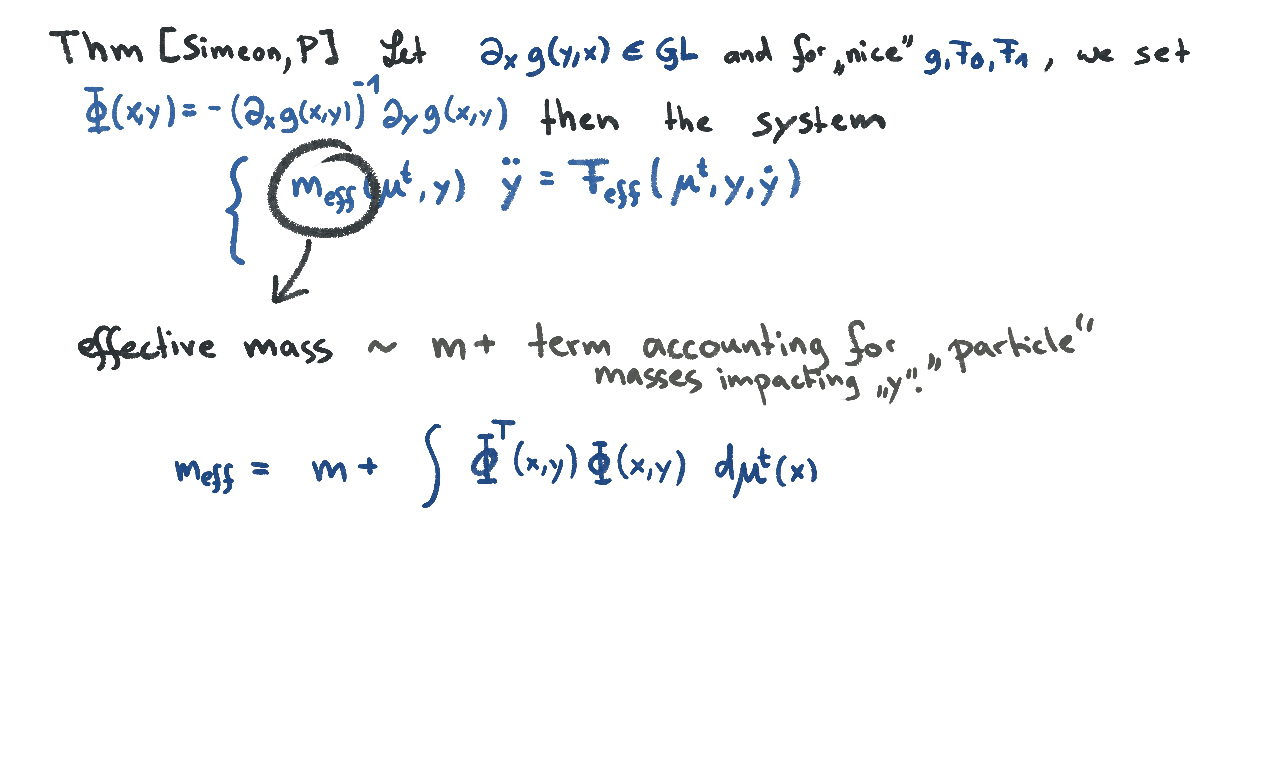 Thm [Simeon, P] Let ∂ₓ g(y,x) ∈ GL and for „nice" g, F₀, F₁, we set
Φ(x,y) = - (∂ₓ g(x,y))⁻¹ ∂ᵧ g(x,y) then the system
{ m_eff (μᵗ, y) ÿ = F_eff (μᵗ, y, ẏ)
effective mass ~ m + term accounting for „particle"
masses impacting „y".
m_eff = m + ∫ Φᵀ(x,y) Φ(x,y) dμᵗ(x)